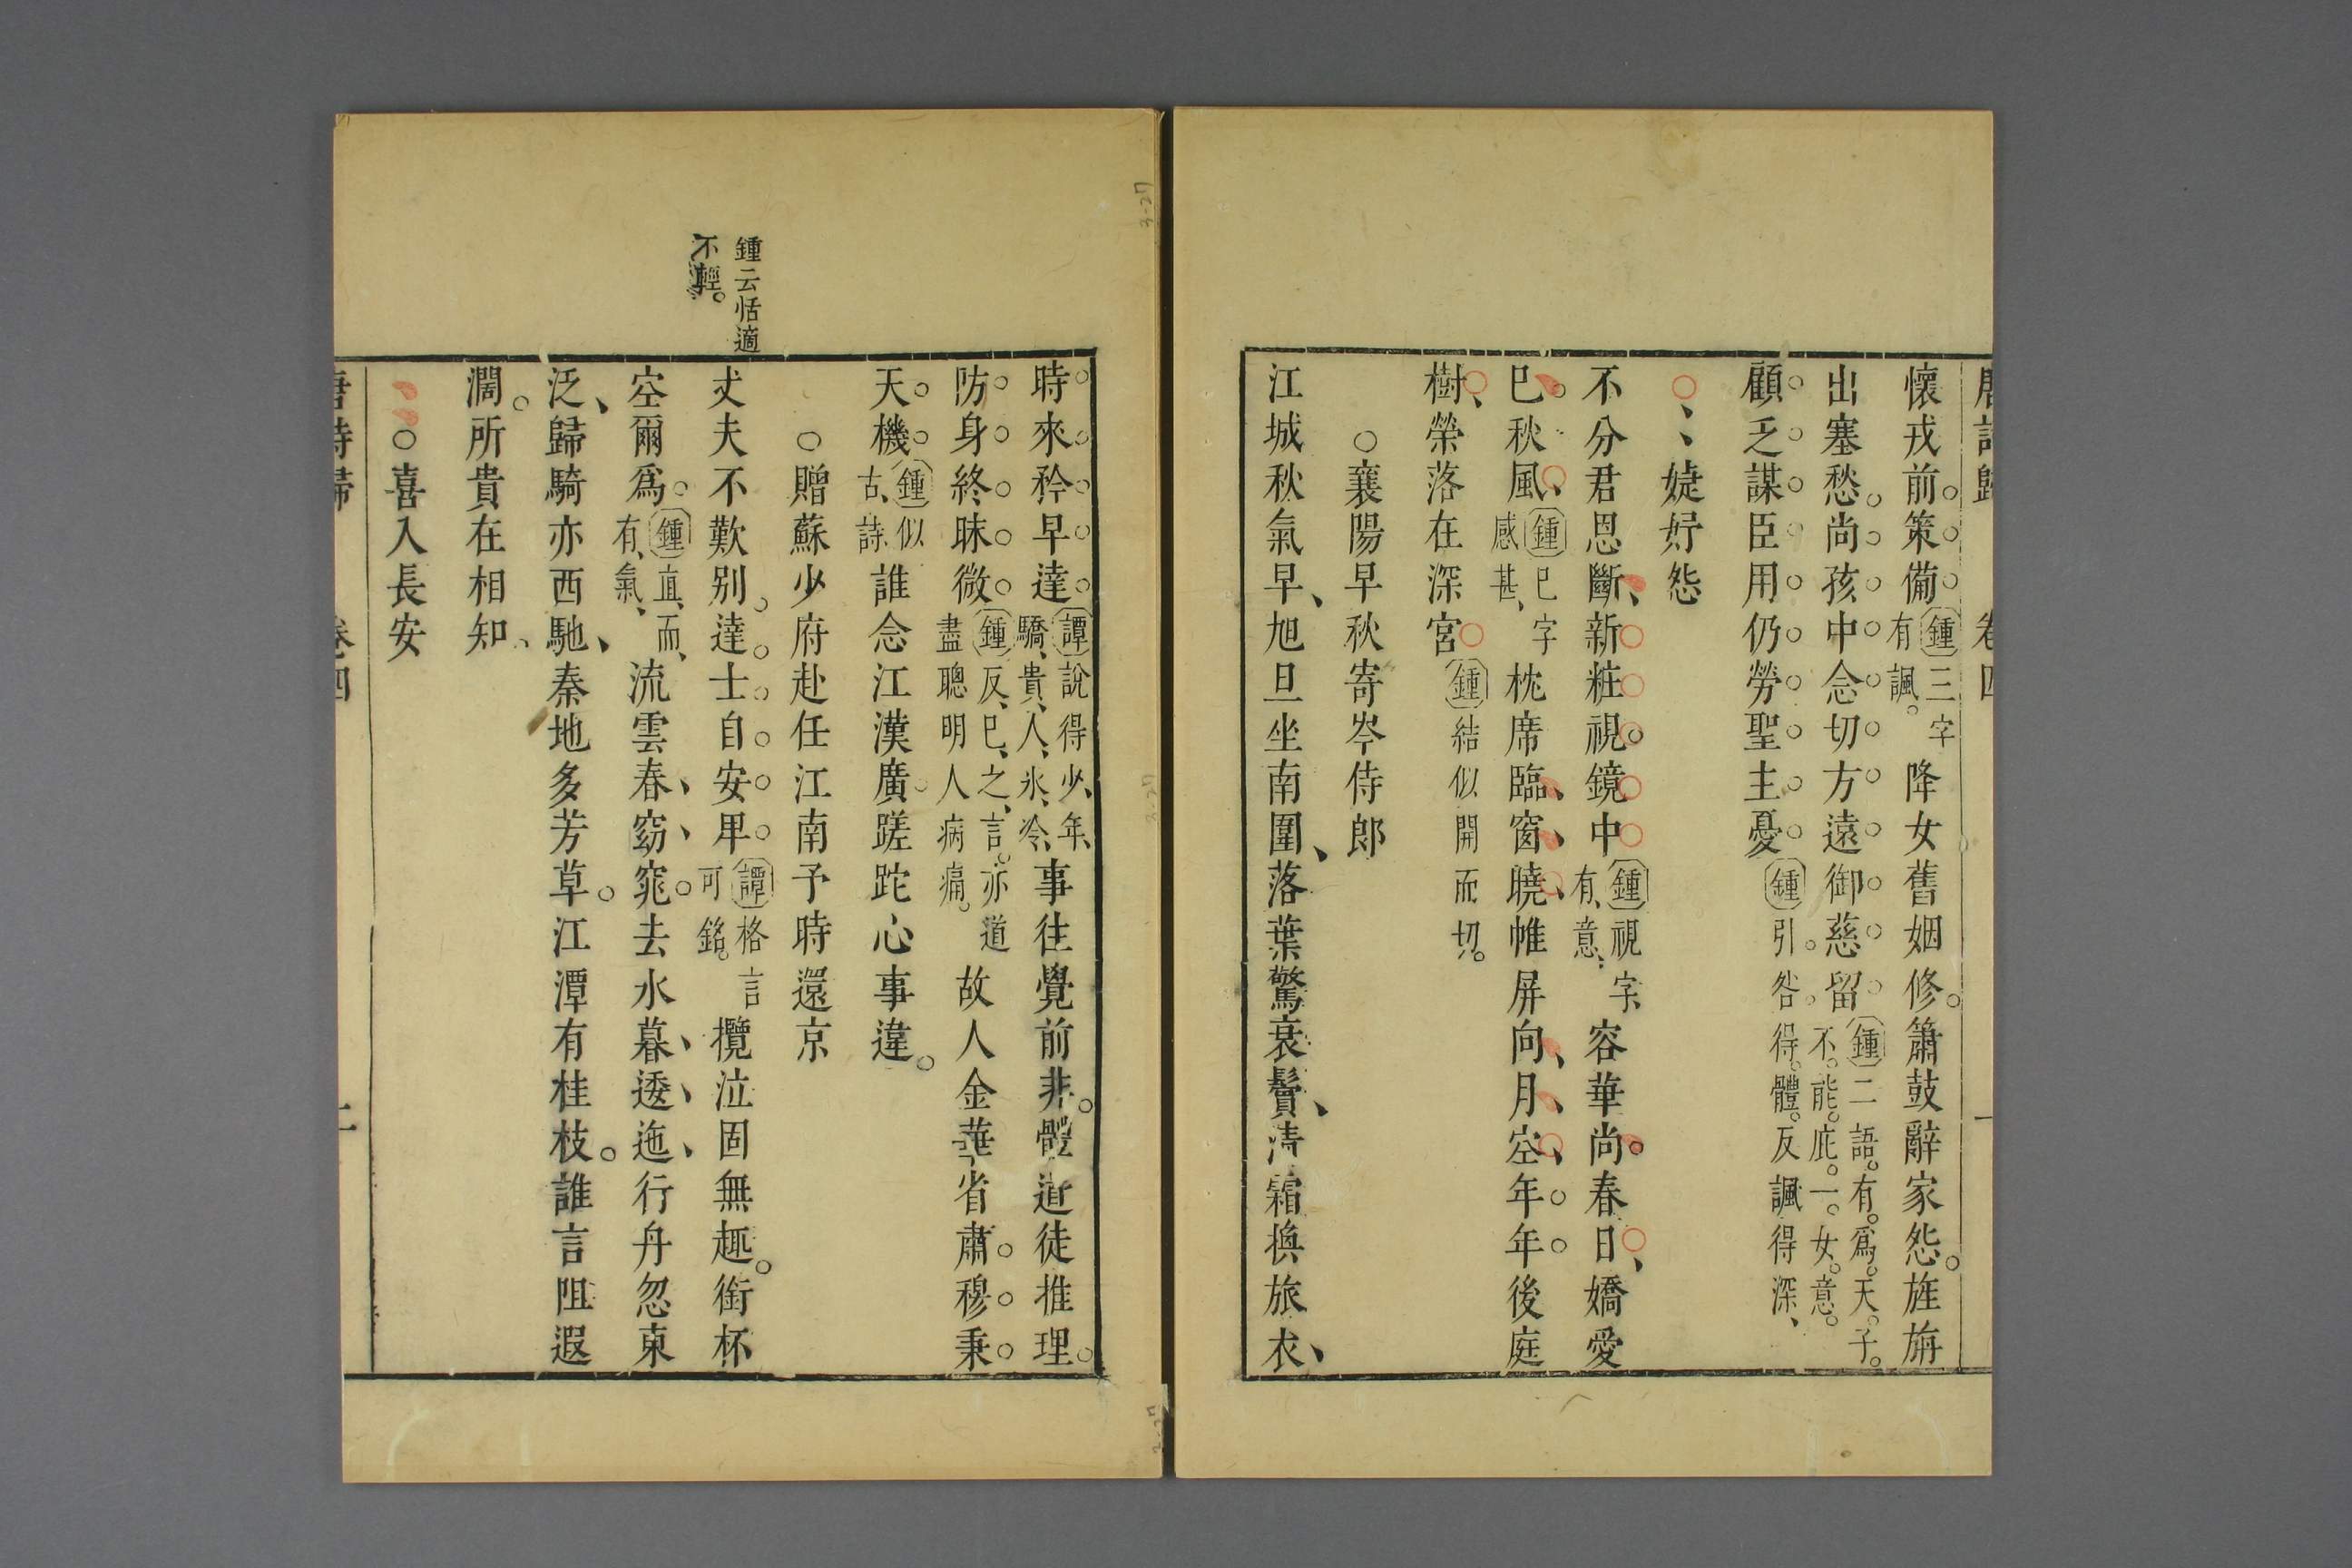 唐詩歸 卷四 一
懷戎前策備鍾三字有諷。降女舊姻修。簫鼓辭家怨。旌旃
出塞愁。尚孩中念切方遠御慈留鍾二語。有。爲。天。子。不。能。庇。一。女。意。
顧乏謀臣用仍勞聖主憂鍾引咎。得。體。反諷得深、
婕妤怨
不分君恩斷、新粧視鏡中鍾視字、有、意、容華尚春日、嬌愛
已秋風、鍾已字感甚、枕席臨窗曉、帷屏向、月空、年年後庭
樹、榮落在深宮鍾結似開而切。
○襄陽早秋寄岑侍郎
江城秋氣早、旭旦坐南圍、落葉驚衰鬢、清霜換旅衣、
時來矜早達譚說得少、年、驕、貴、人、氷、冷、事往覺前非。體道徒推理。
防身終昧微鍾反、已、之、言。亦道盡聰明人病痛。故人金華省肅穆秉
天機鍾似古、詩、誰念江漢廣蹉跎心事違。
○贈蘇少府赴任江南予時還京
丈夫不歎別。達士自安卑譚格言可銘。攬泣固無趣。銜杯
空爾爲。鍾直、而、有、氣、流雲春、窈、窕。去水暮、逶、迤、行舟忽東
泛、歸騎亦西馳、秦地多芳草。江潭有桂枝。誰言阻遐
濶。所貴在相知、
○喜入長安
唐詩歸 卷四 二
鍾云恬適
不輕。